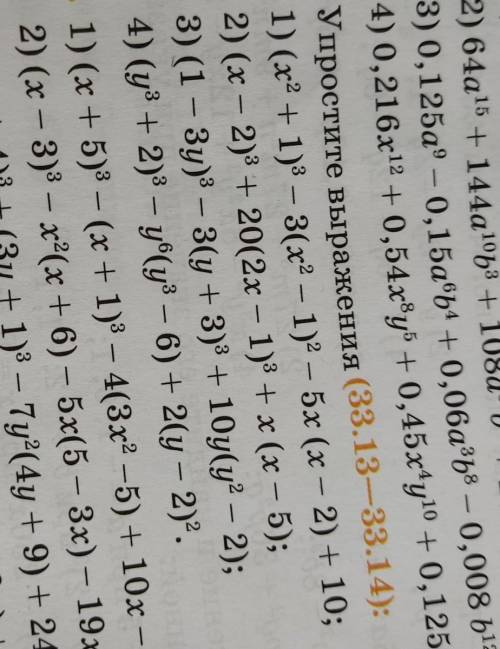 2) 64a¹⁵ + 144a¹⁰b³ + 108a
3) 0,125a⁹ − 0,15a⁶b⁴ + 0,06a³b⁸ − 0,008 b¹²
4) 0,216x¹² + 0,54x⁸y⁵ + 0,45x⁴y¹⁰ + 0,125
Упростите выражения (33.13—33.14):
1) (x² + 1)³ − 3(x² − 1)² − 5x (x − 2) + 10;
2) (x − 2)³ + 20(2x − 1)³ + x (x − 5);
3) (1 − 3y)³ − 3(y + 3)³ + 10y(y² − 2);
4) (y³ + 2)³ − y⁶(y³ − 6) + 2(y − 2)².
1) (x + 5)³ − (x + 1)³ − 4(3x² −5) + 10x −
2) (x − 3)³ − x²(x + 6) − 5x(5 − 3x) − 19x
4)³ + (3y + 1)³ − 7y²(4y + 9) + 24